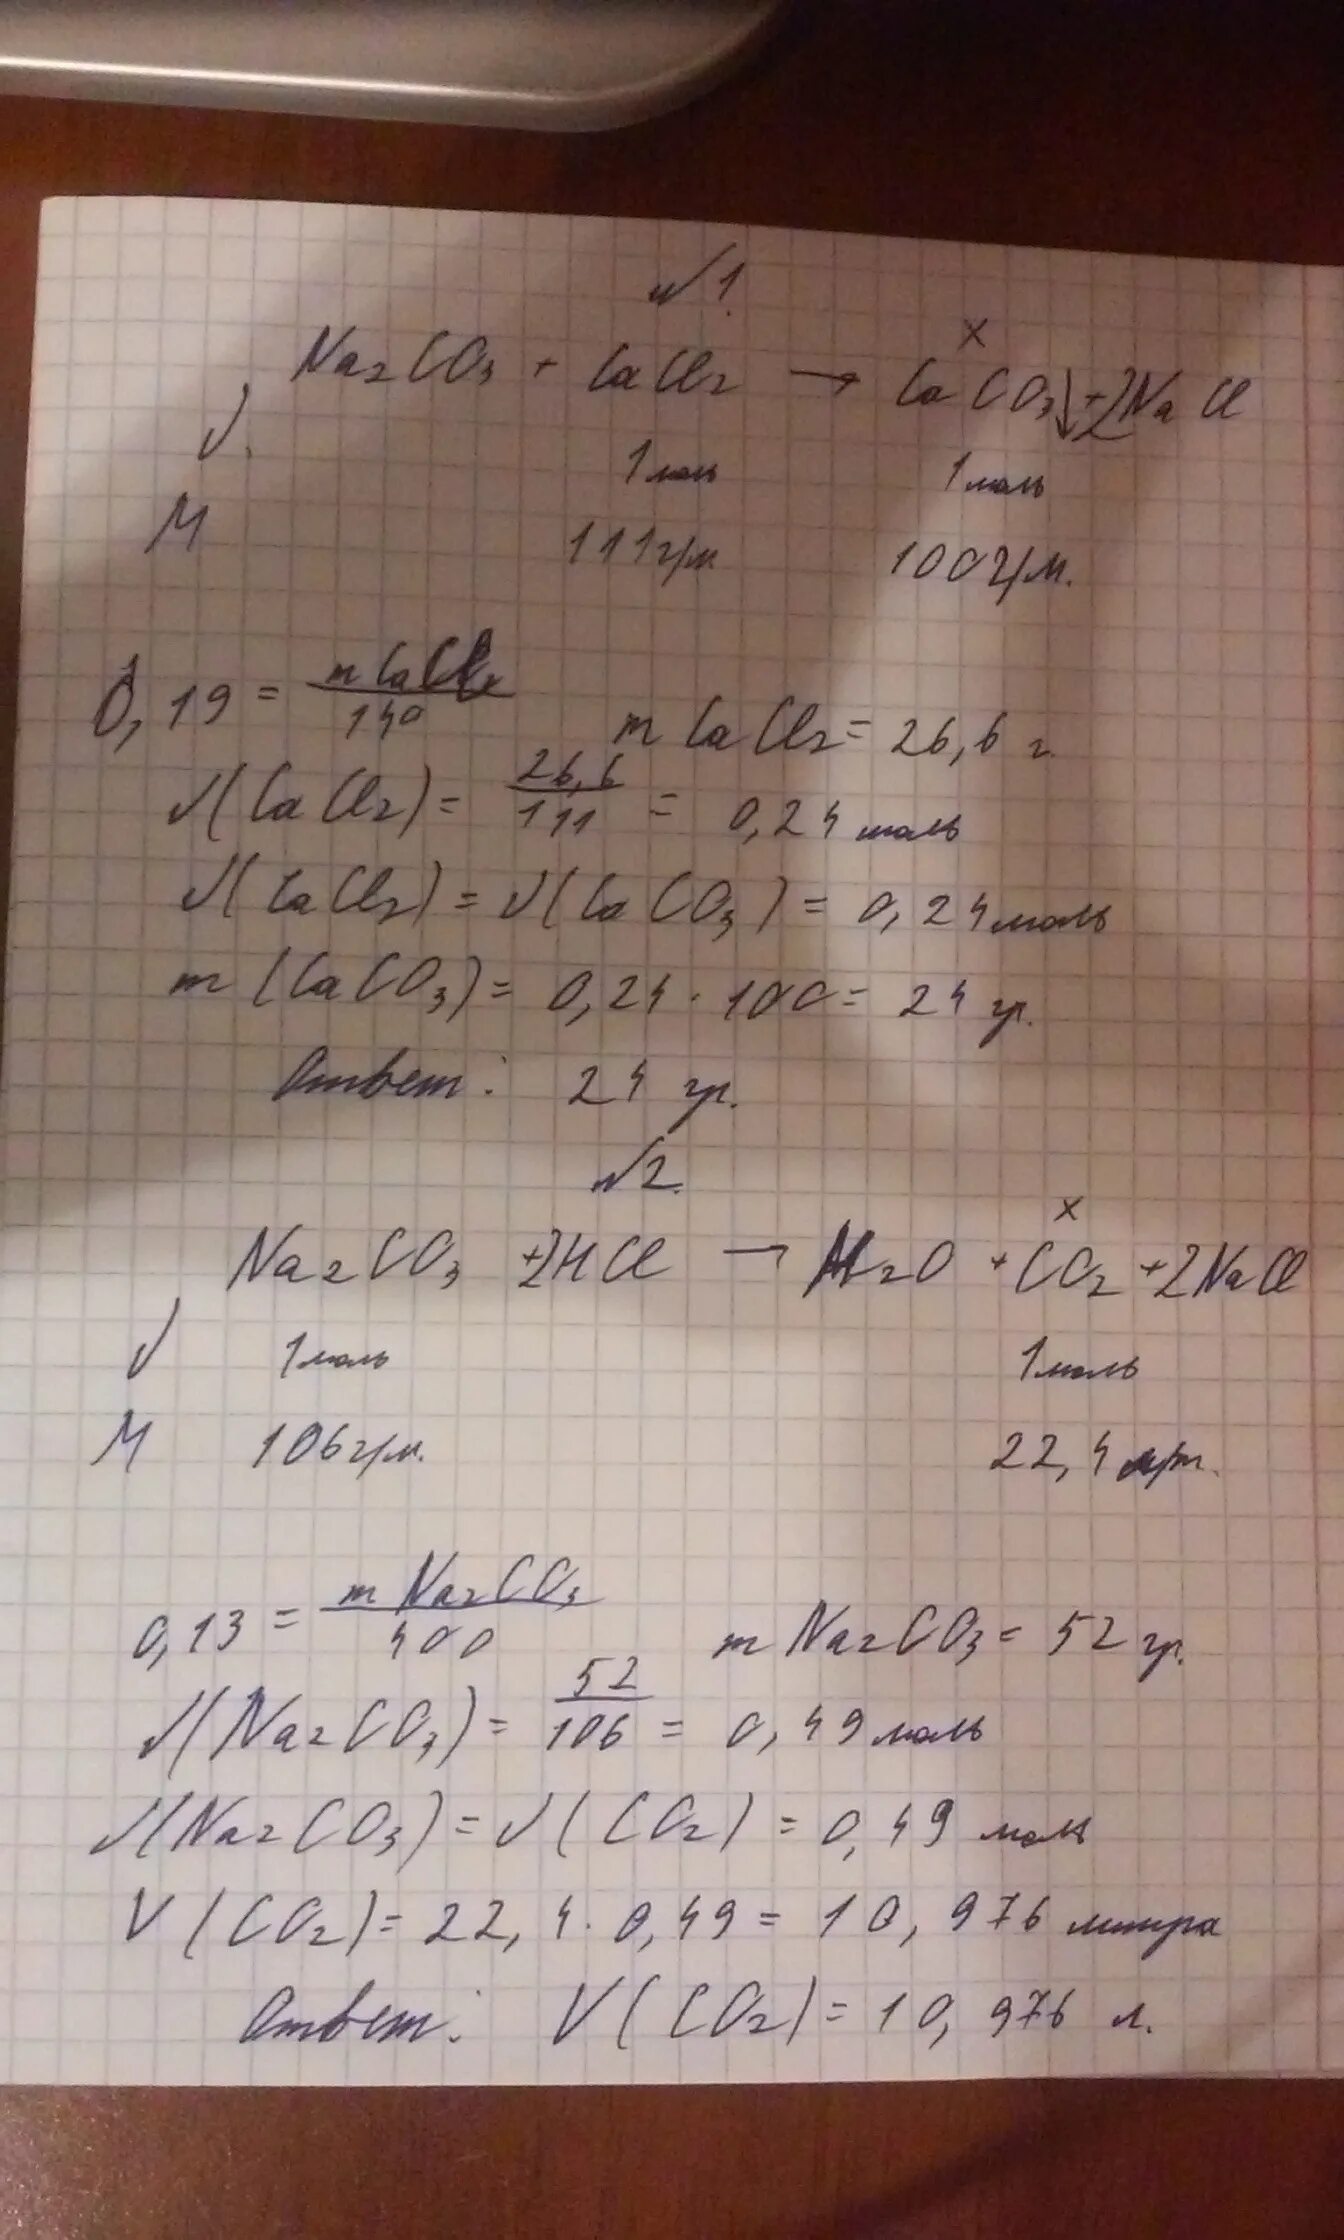 №1.
x
Na2CO3 + CaCl2 → CaCO3↓ + 2NaCl
ν. 1моль 1моль
M 111г/м 100г/м.
0,19 = m CaCl2 / 140 m CaCl2 = 26,6 г.
ν(CaCl2) = 26,6 / 111 = 0,24 моль
ν(CaCl2) = ν(CaCO3) = 0,24 моль
m (CaCO3) = 0,24 · 100 = 24 гр.
Ответ: 24 гр.
№2.
x
Na2CO3 + 2HCl → H2O + CO2 + 2NaCl
ν 1моль 1моль
M 106г/м. 22,4
0,13 = m Na2CO3 / 400 m Na2CO3 = 52 гр.
ν(Na2CO3) = 52 / 106 = 0,49 моль
ν(Na2CO3) = ν(CO2) = 0,49 моль
V(CO2) = 22,4 · 0,49 = 10,976 литра
Ответ: V(CO2) = 10,976 л.